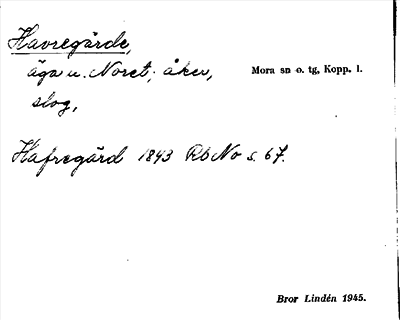 Havregärde,
äga u. Noret; åker, Mora sn o. tg, Kopp. l.
slog,
Hafregärd 1843 RbNo s. 67.
Bror Lindén 1945.